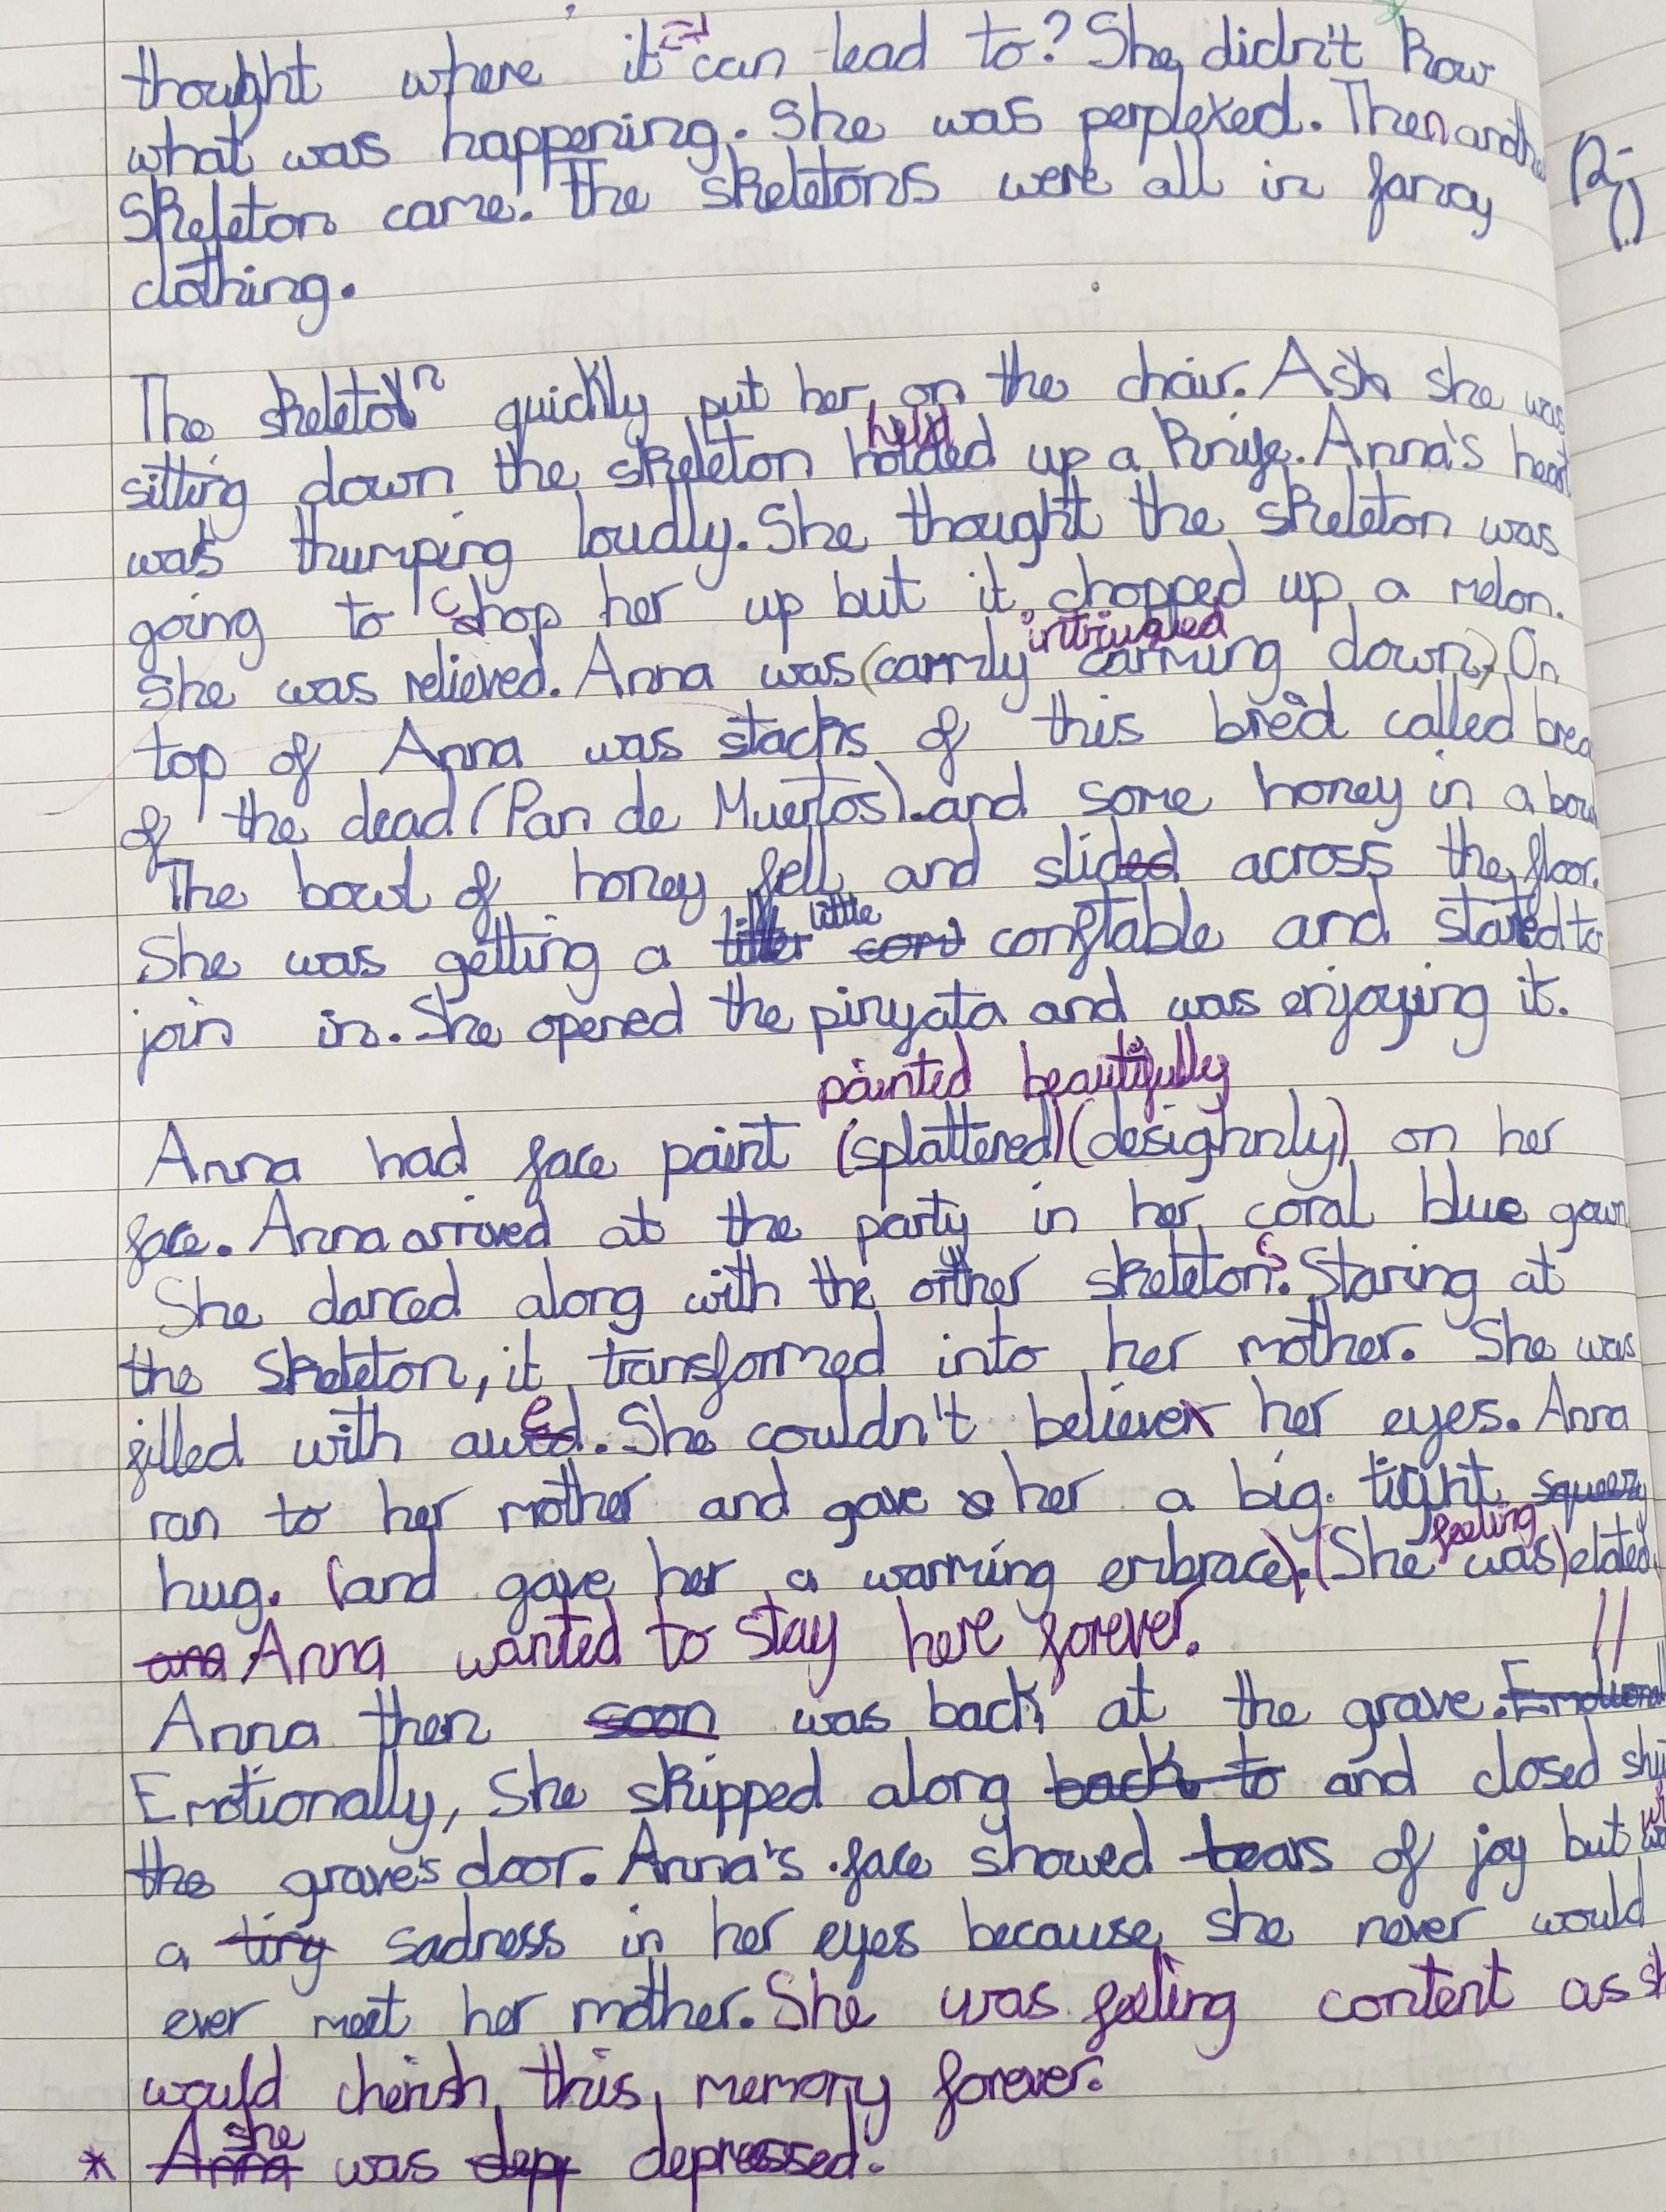 thought where it can lead to? She didn't know
what was happening. She was perplexed. Then
skeleton came. The skeletons were all in fancy
clothing.
The skeleton quickly put her on the chair. As she was
held
sitting down the skeleton holded up a knife. Anna's heart
was thumping loudly. She thought the skeleton was
going to chop her up but it chopped up a melon.
intriugled
She was relieved. Anna was (carmly carming down) On
top of Anna was stacks of this bred called
of the dead (Pan de Muertos). and some honey in a
The bowl of honey fell and slided across the floor.
little
She was getting a conftable and stated to
join in. She opened the pinyata and was enjoying it.
painted beautifully
Anna had face paint (splattered) (desighnly) on her
face. Anna arrived at the party in her coral blue gown
She danced along with the other skeletons. Staring at
the skeleton, it transformed into her mother. She was
filled with awe. She couldn't believe her eyes. Anna
ran to her mother and gave her a big tight squeezy
feeling
hug. (and gave her a warming embrace). (She was) elated.
and Anna wanted to stay here forever.
Anna then soon was back at the grave.
Emotionally, She skipped along back to and closed
the grave's door. Anna's face showed tears of joy but
a tiny sadness in her eyes because she never would
ever meet her mother. She was feeling content as
would cherish this memory forever.
she
* Anna was depp depressed.